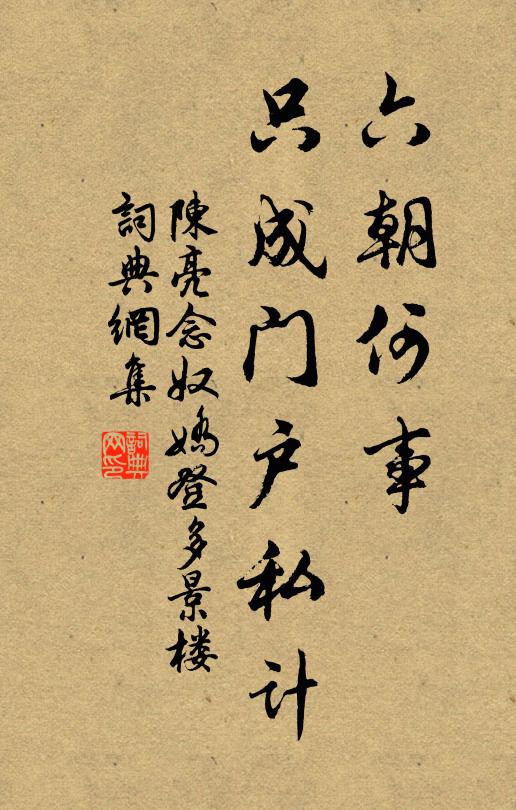 六朝何事
只成门户私计
陳亮念奴嬌登多景楼
詞典網集
詞典网印